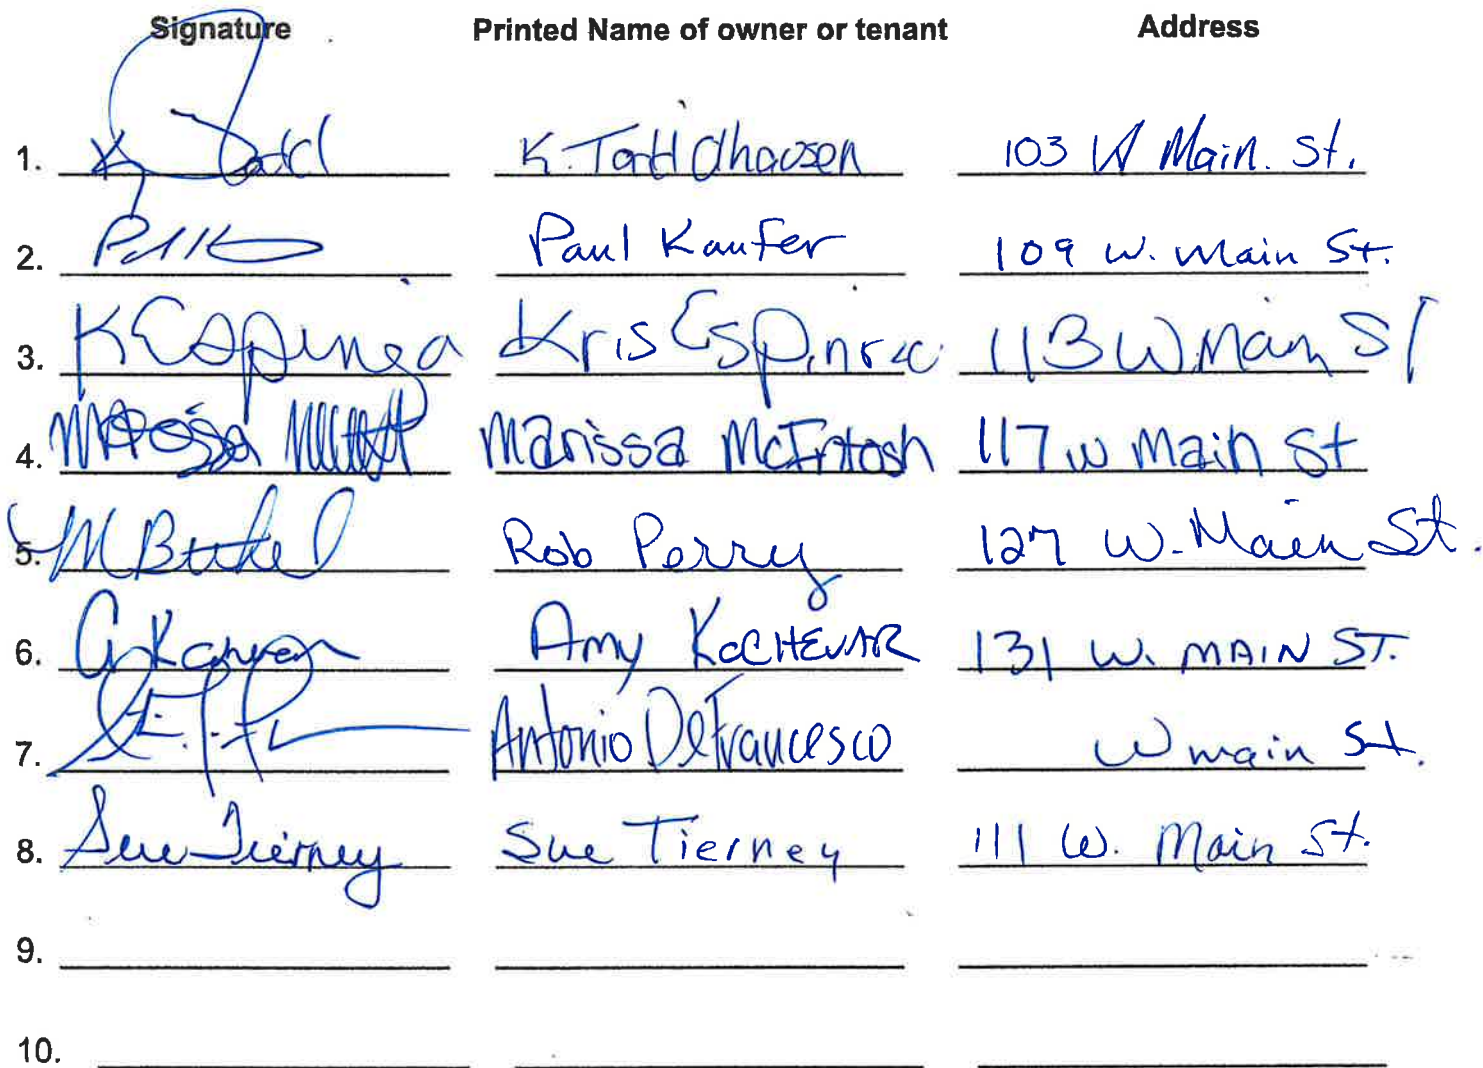 Signature Printed Name of owner or tenant Address
1. K Todd K. Todd Dhausen 103 W Main. St.
2. Paul Kaufer 109 W. Main St.
3. K Espinoza Kris 113 W Main St
4. Marissa Marissa McIntosh 117 W Main St
5. Rob Perry 127 W. Main St.
6. Amy KOCHEVAR 131 W. MAIN ST.
7. Antonio DeFrancesco W main St.
8. Sue Tierney Sue Tierney 111 W. Main St.
9.
10.